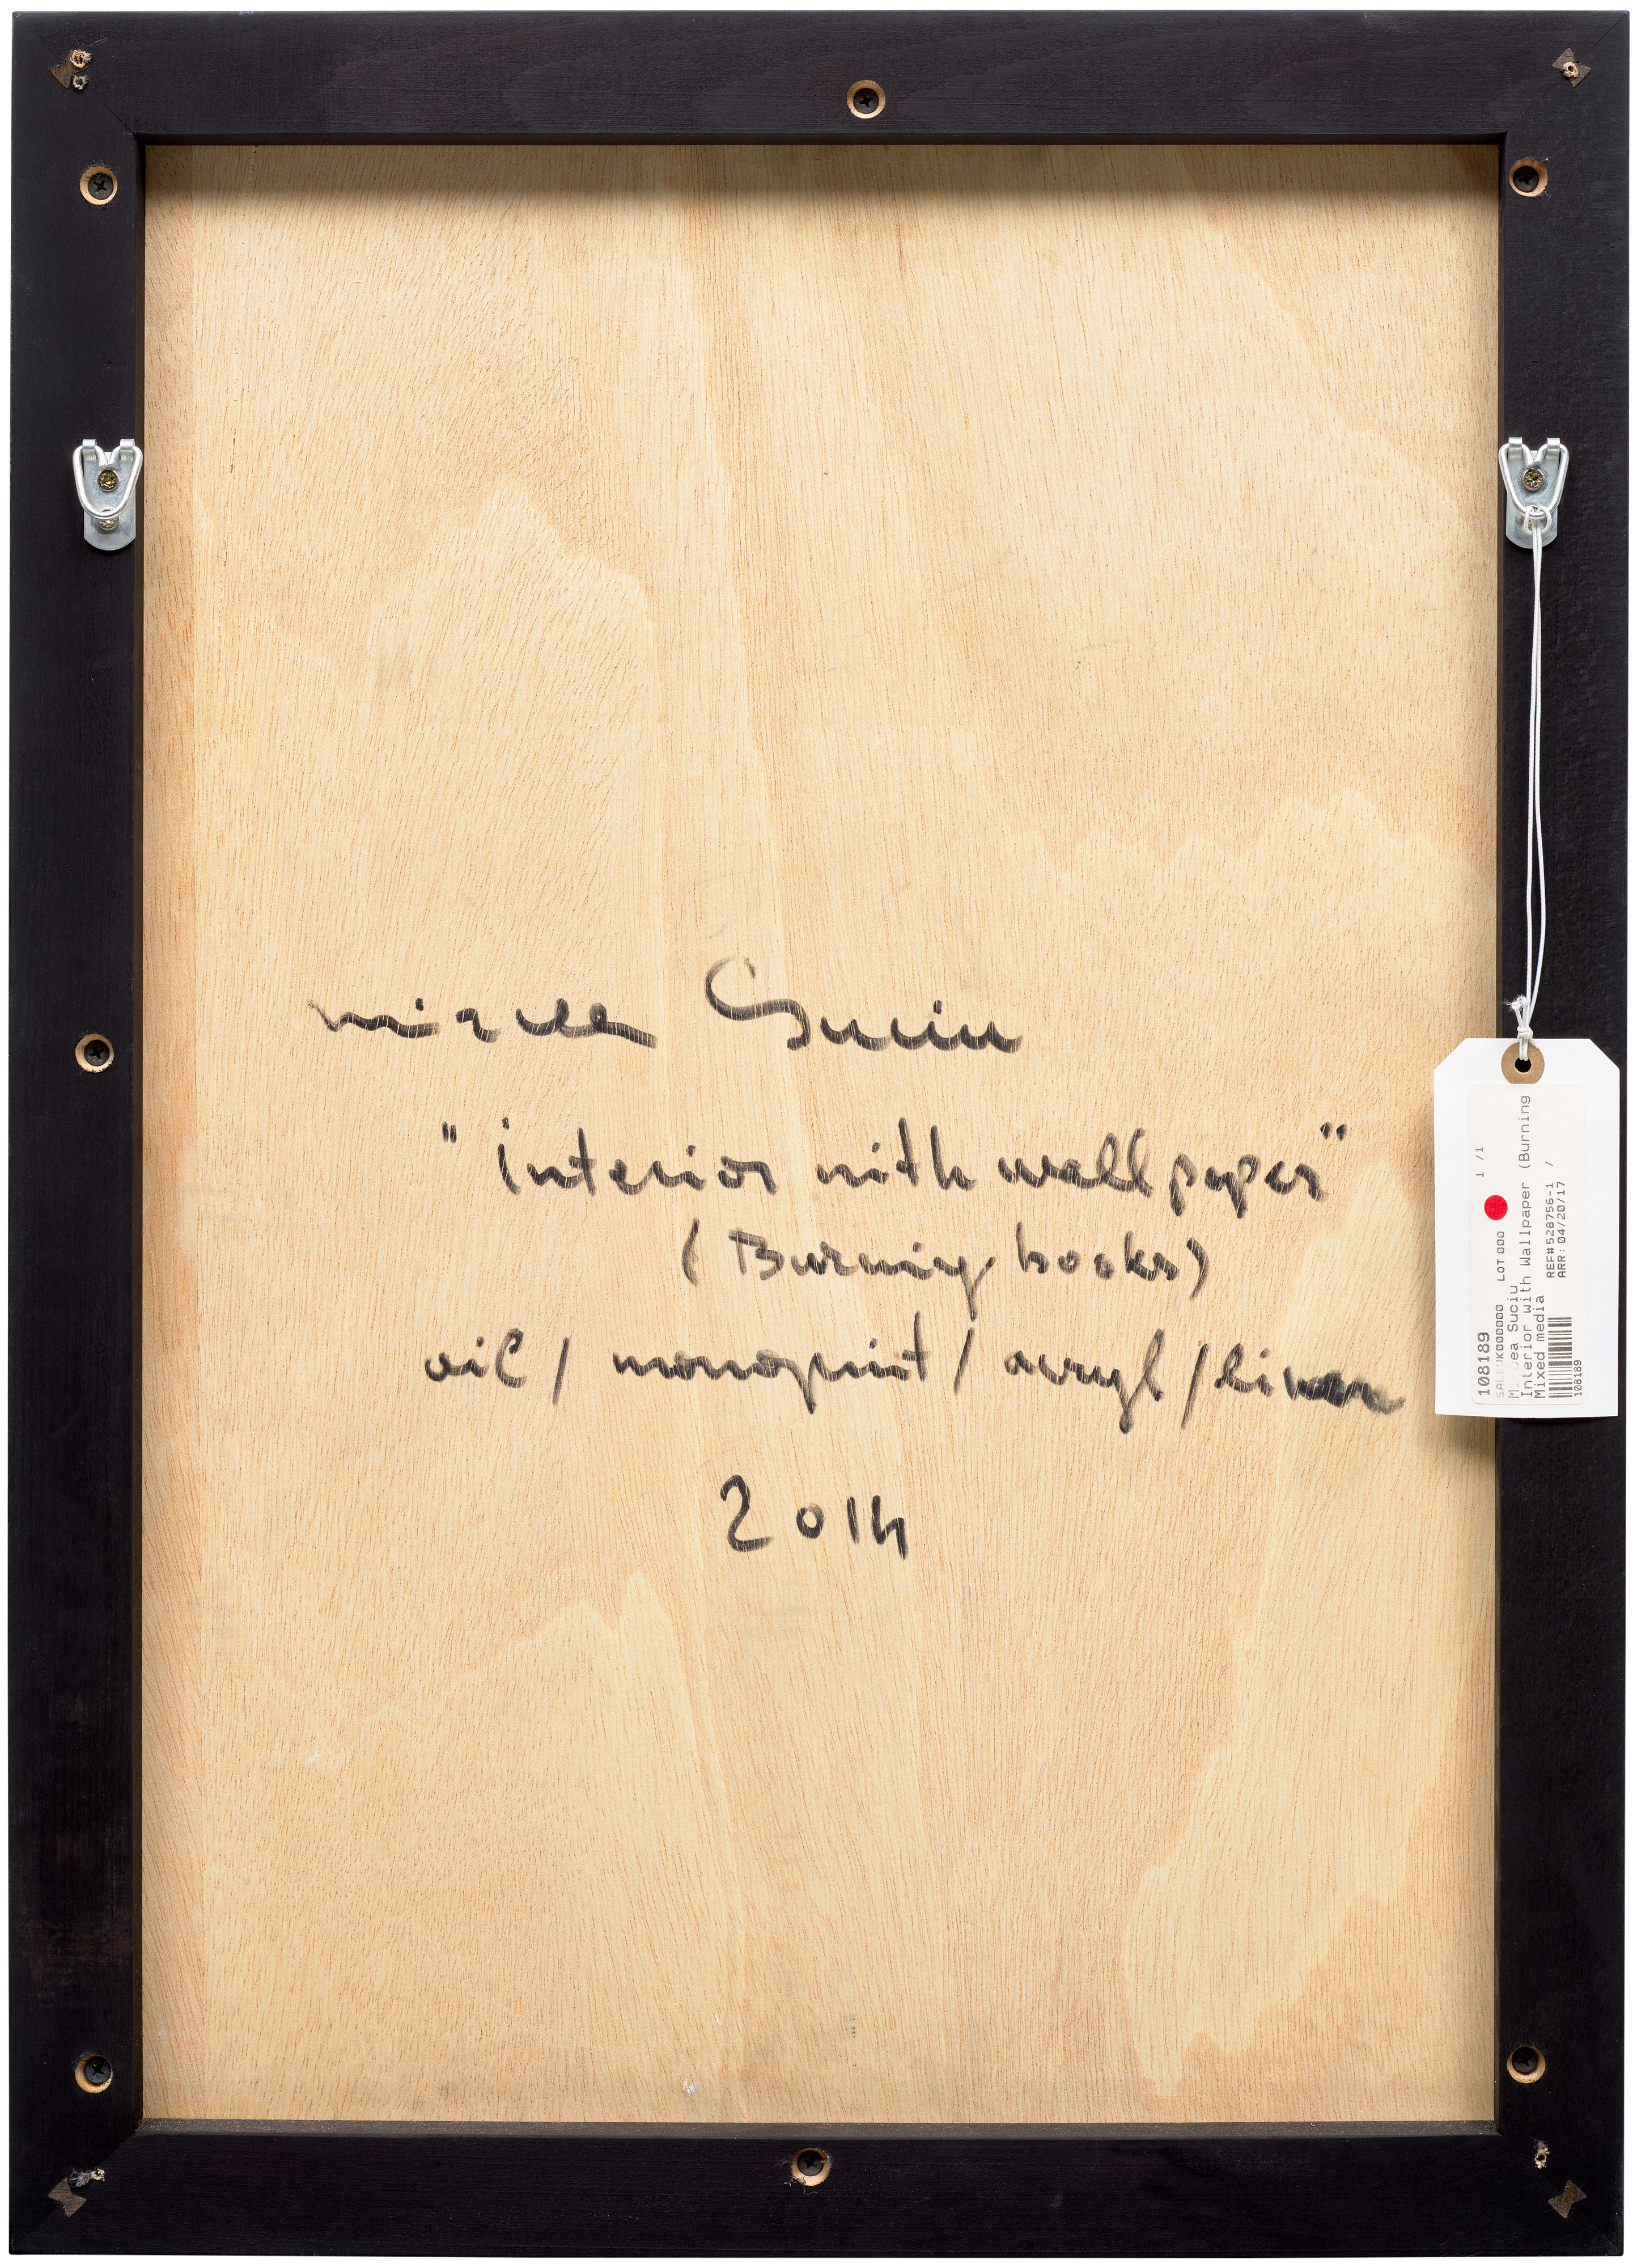 mircea Suciu
"interior with wallpaper"
(Burning books)
oil / monoprint / acryl / linen
2014
108189 1 /1
LOT 000
ea Suciu
Interior with Wallpaper (Burning
Mixed media REF#528756-1 /
ARR: 04/20/17
108189